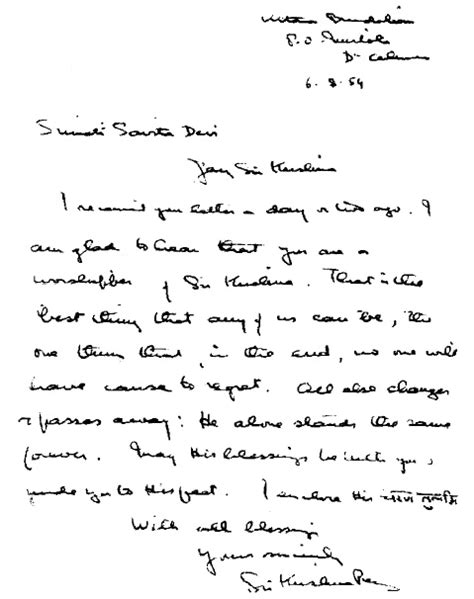 Uttara Brindaban
P.O. Mirtola
Dt
6. 8. 54
Srimati Savitri Devi
Jay Sri Krishna
I received your letter a day or two ago. I
am glad to hear that you are a
worshipper of Sri Krishna. That is the
best thing that any of us can be, the
one thing that, in the end, no one will
have cause to regret. All else changes
& passes away: He alone stands the same
forever. May His blessings be with you &
you to His feet. I enclose His
With all blessings
Yours sincerely
Sri Krishna Prem